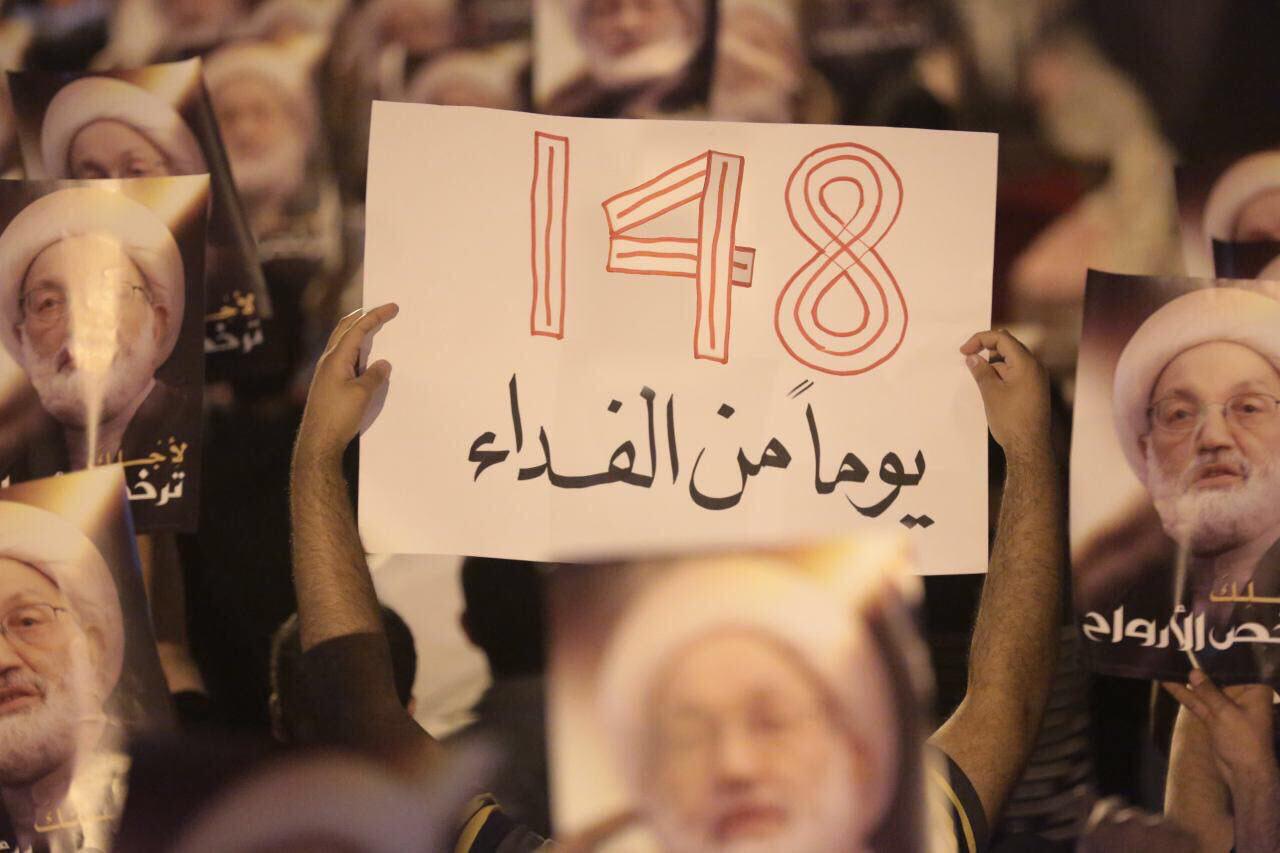 148
يوماً من الفداء
لأجلك
ترخص
لأجلك
ترخص
ـلك
خص الأرواح